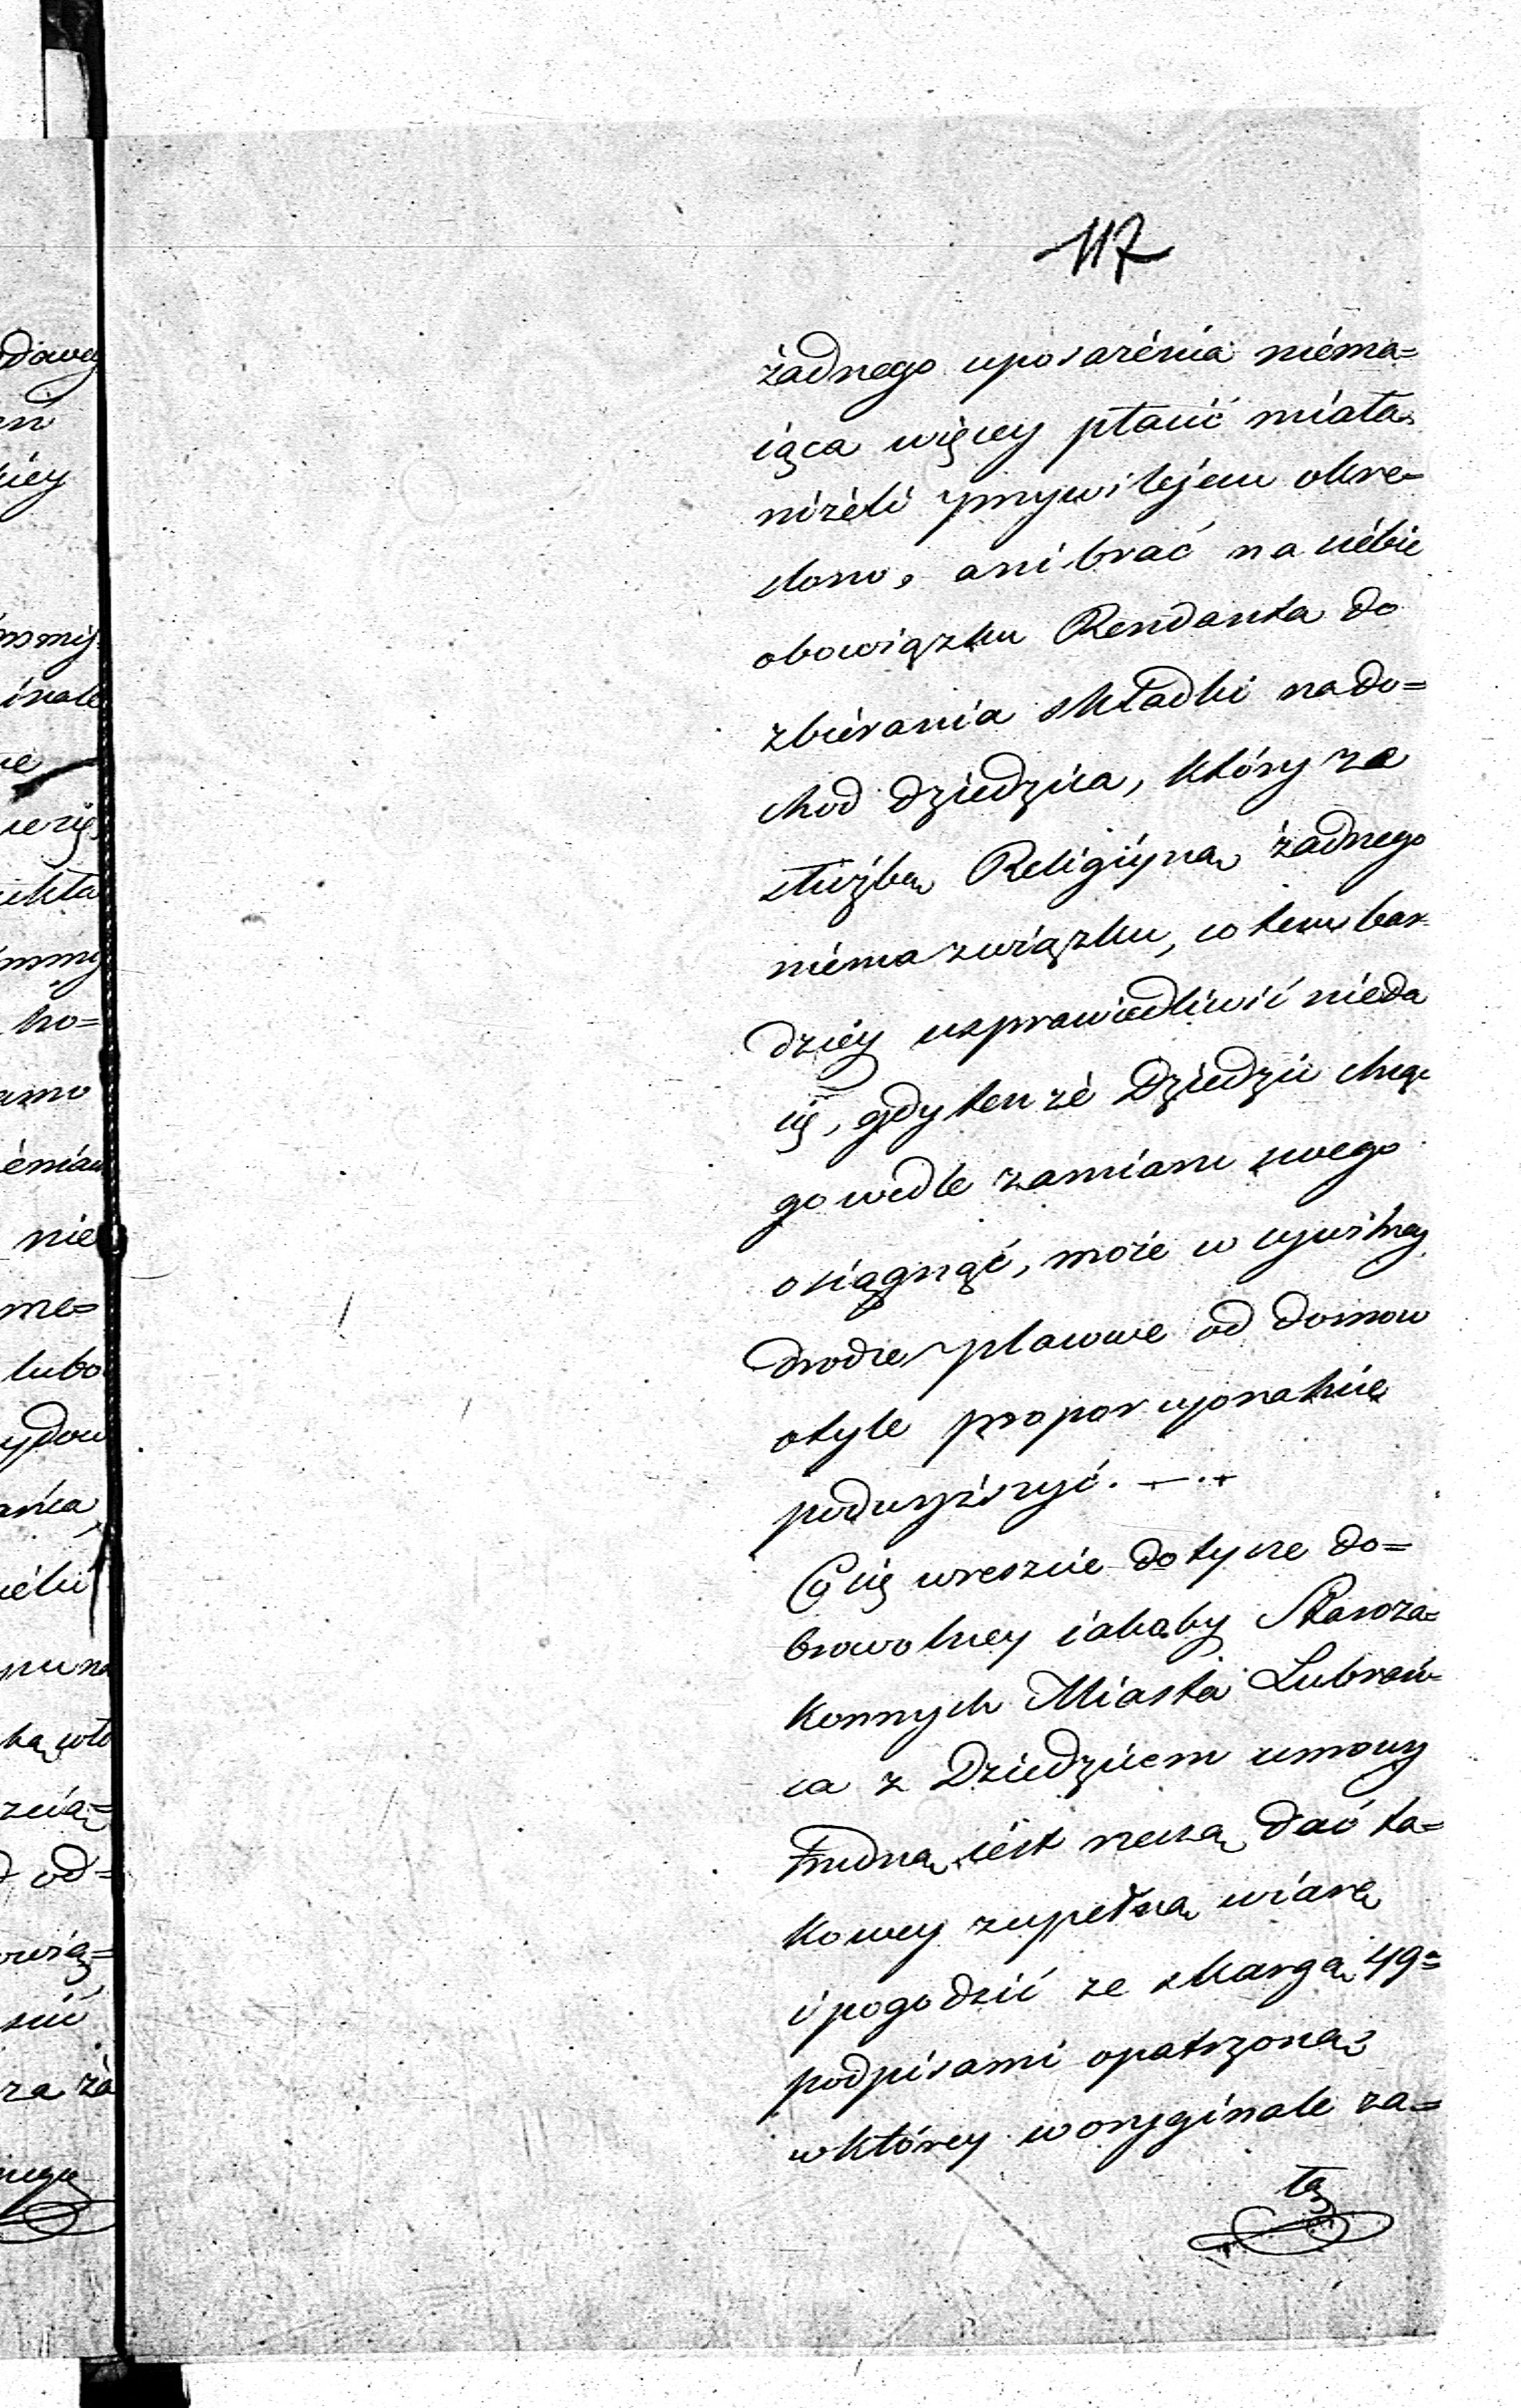 117
żadnego uposarénia niéma=
iąca więcey płacić miała
niżéli przywilejem okre=
slono, ani brać na siébie
obowiązku Rendanta do
zbiérania składki na do=
chod dziedzica, który za
służbą Religiyną żadnego
niéma związku, co tem bar=
dziéy usprawiedliwić nieda
się, gdy tenże Dziedzic chcąc
go wedle zamiaru swego
osiągnąć, może w cywilney
drodze placowe od domow
otyle proporcyonalnie
podwyższyć. —
Co się wreszcie dotycze do=
browolney iakąby Starozą=
konnych Miasta Lubrań=
ca z Dziedzicem umowy
Trudną iést rzeczą dać ta=
kowey zupełną wiarę
i pogodzić ze skargą 49=
podpisami opatrzoną
w którey w oryginale za=
łą